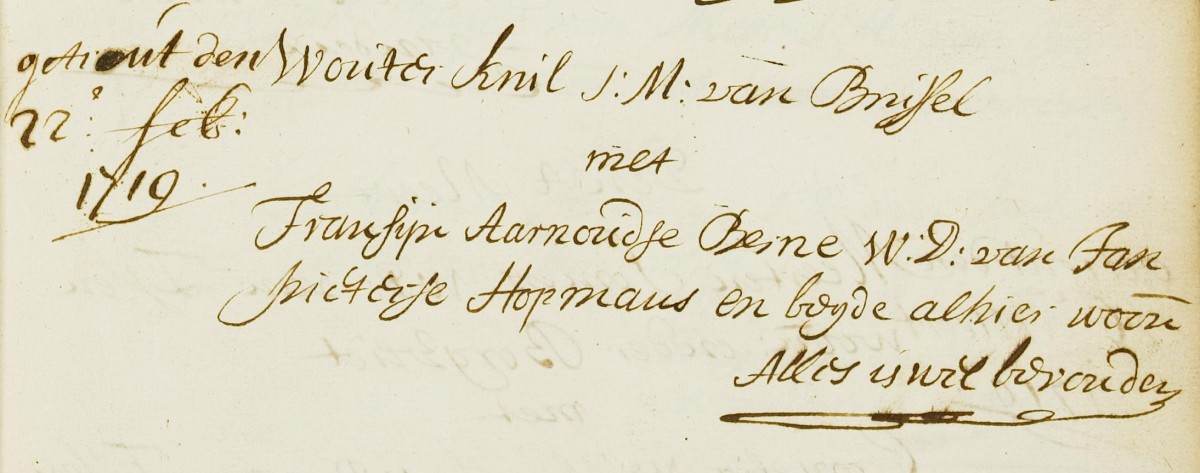 getrout den
22e: feb:
1719.
Wouter Knil J: M: van Brussel
met
Fransijn Aarnoudse Beine W: D: van Jan
pieterse Hopmans en beyde alhier woon̄
Alles is wel bevonden